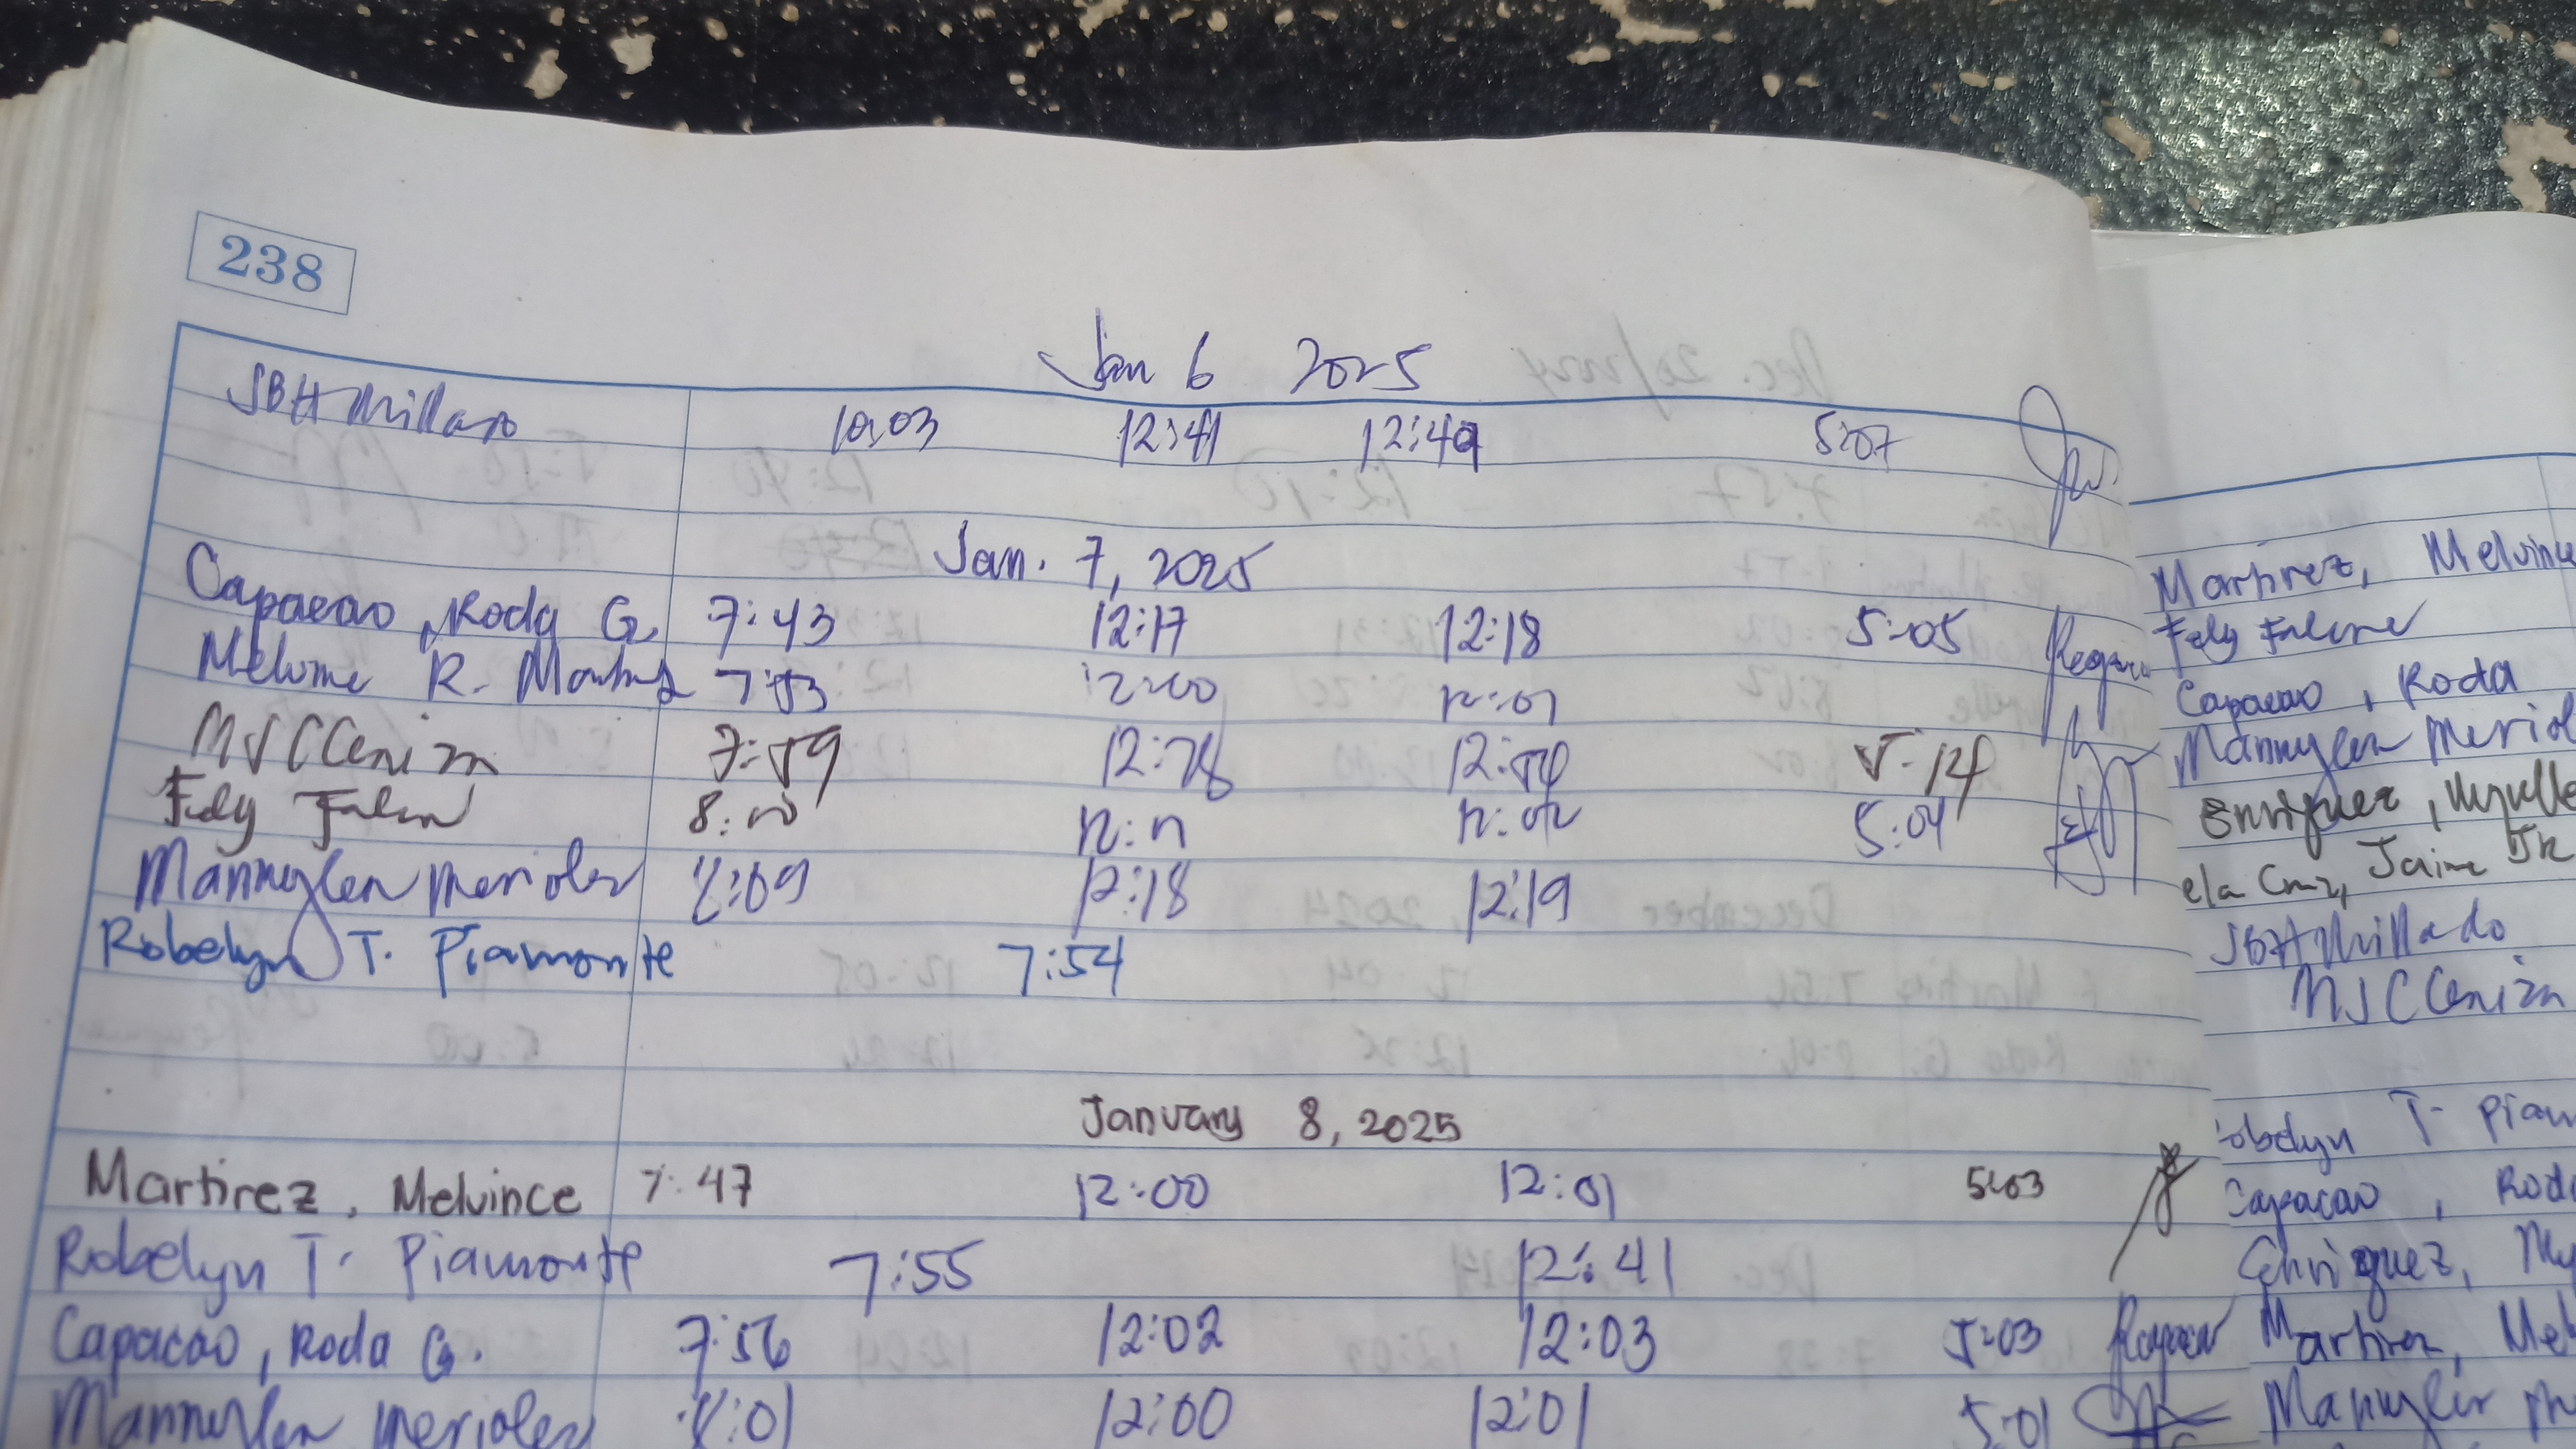 238
Jan 6 2025
JBHMillado 10:03 12:41 12:49 5:07
Jan. 7, 2025
Capacao, Roda G. 7:43 12:17 12:18 5:05
Melvince R. Martirez 7:53 12:00 12:01
MJCCeniza 7:59 12:28 12:54 5:14
Fely 8:00 12:01 12:02 5:04
Mannylen Merioles 8:09 12:18 12:19
Robelyn T. Piamonte 7:54
January 8, 2025
Martirez, Melvince 7:47 12:00 12:01 5:03
Robelyn T. Piamonte 7:55 12:41
Capacao, Roda G. 7:56 12:02 12:03 5:03
Mannylen Merioles 8:01 12:00 12:01 5:01
Martirez, Melvince
Fely
Capacao, Roda
Mannylen Meriol
Enriquez,
ela Cruz, Jaime Jr
JBHMillado
MJCCeniza
obelyn T. Piam
Capacao, Roda
Enriquez, My
Martirez, Mel
Mannylen